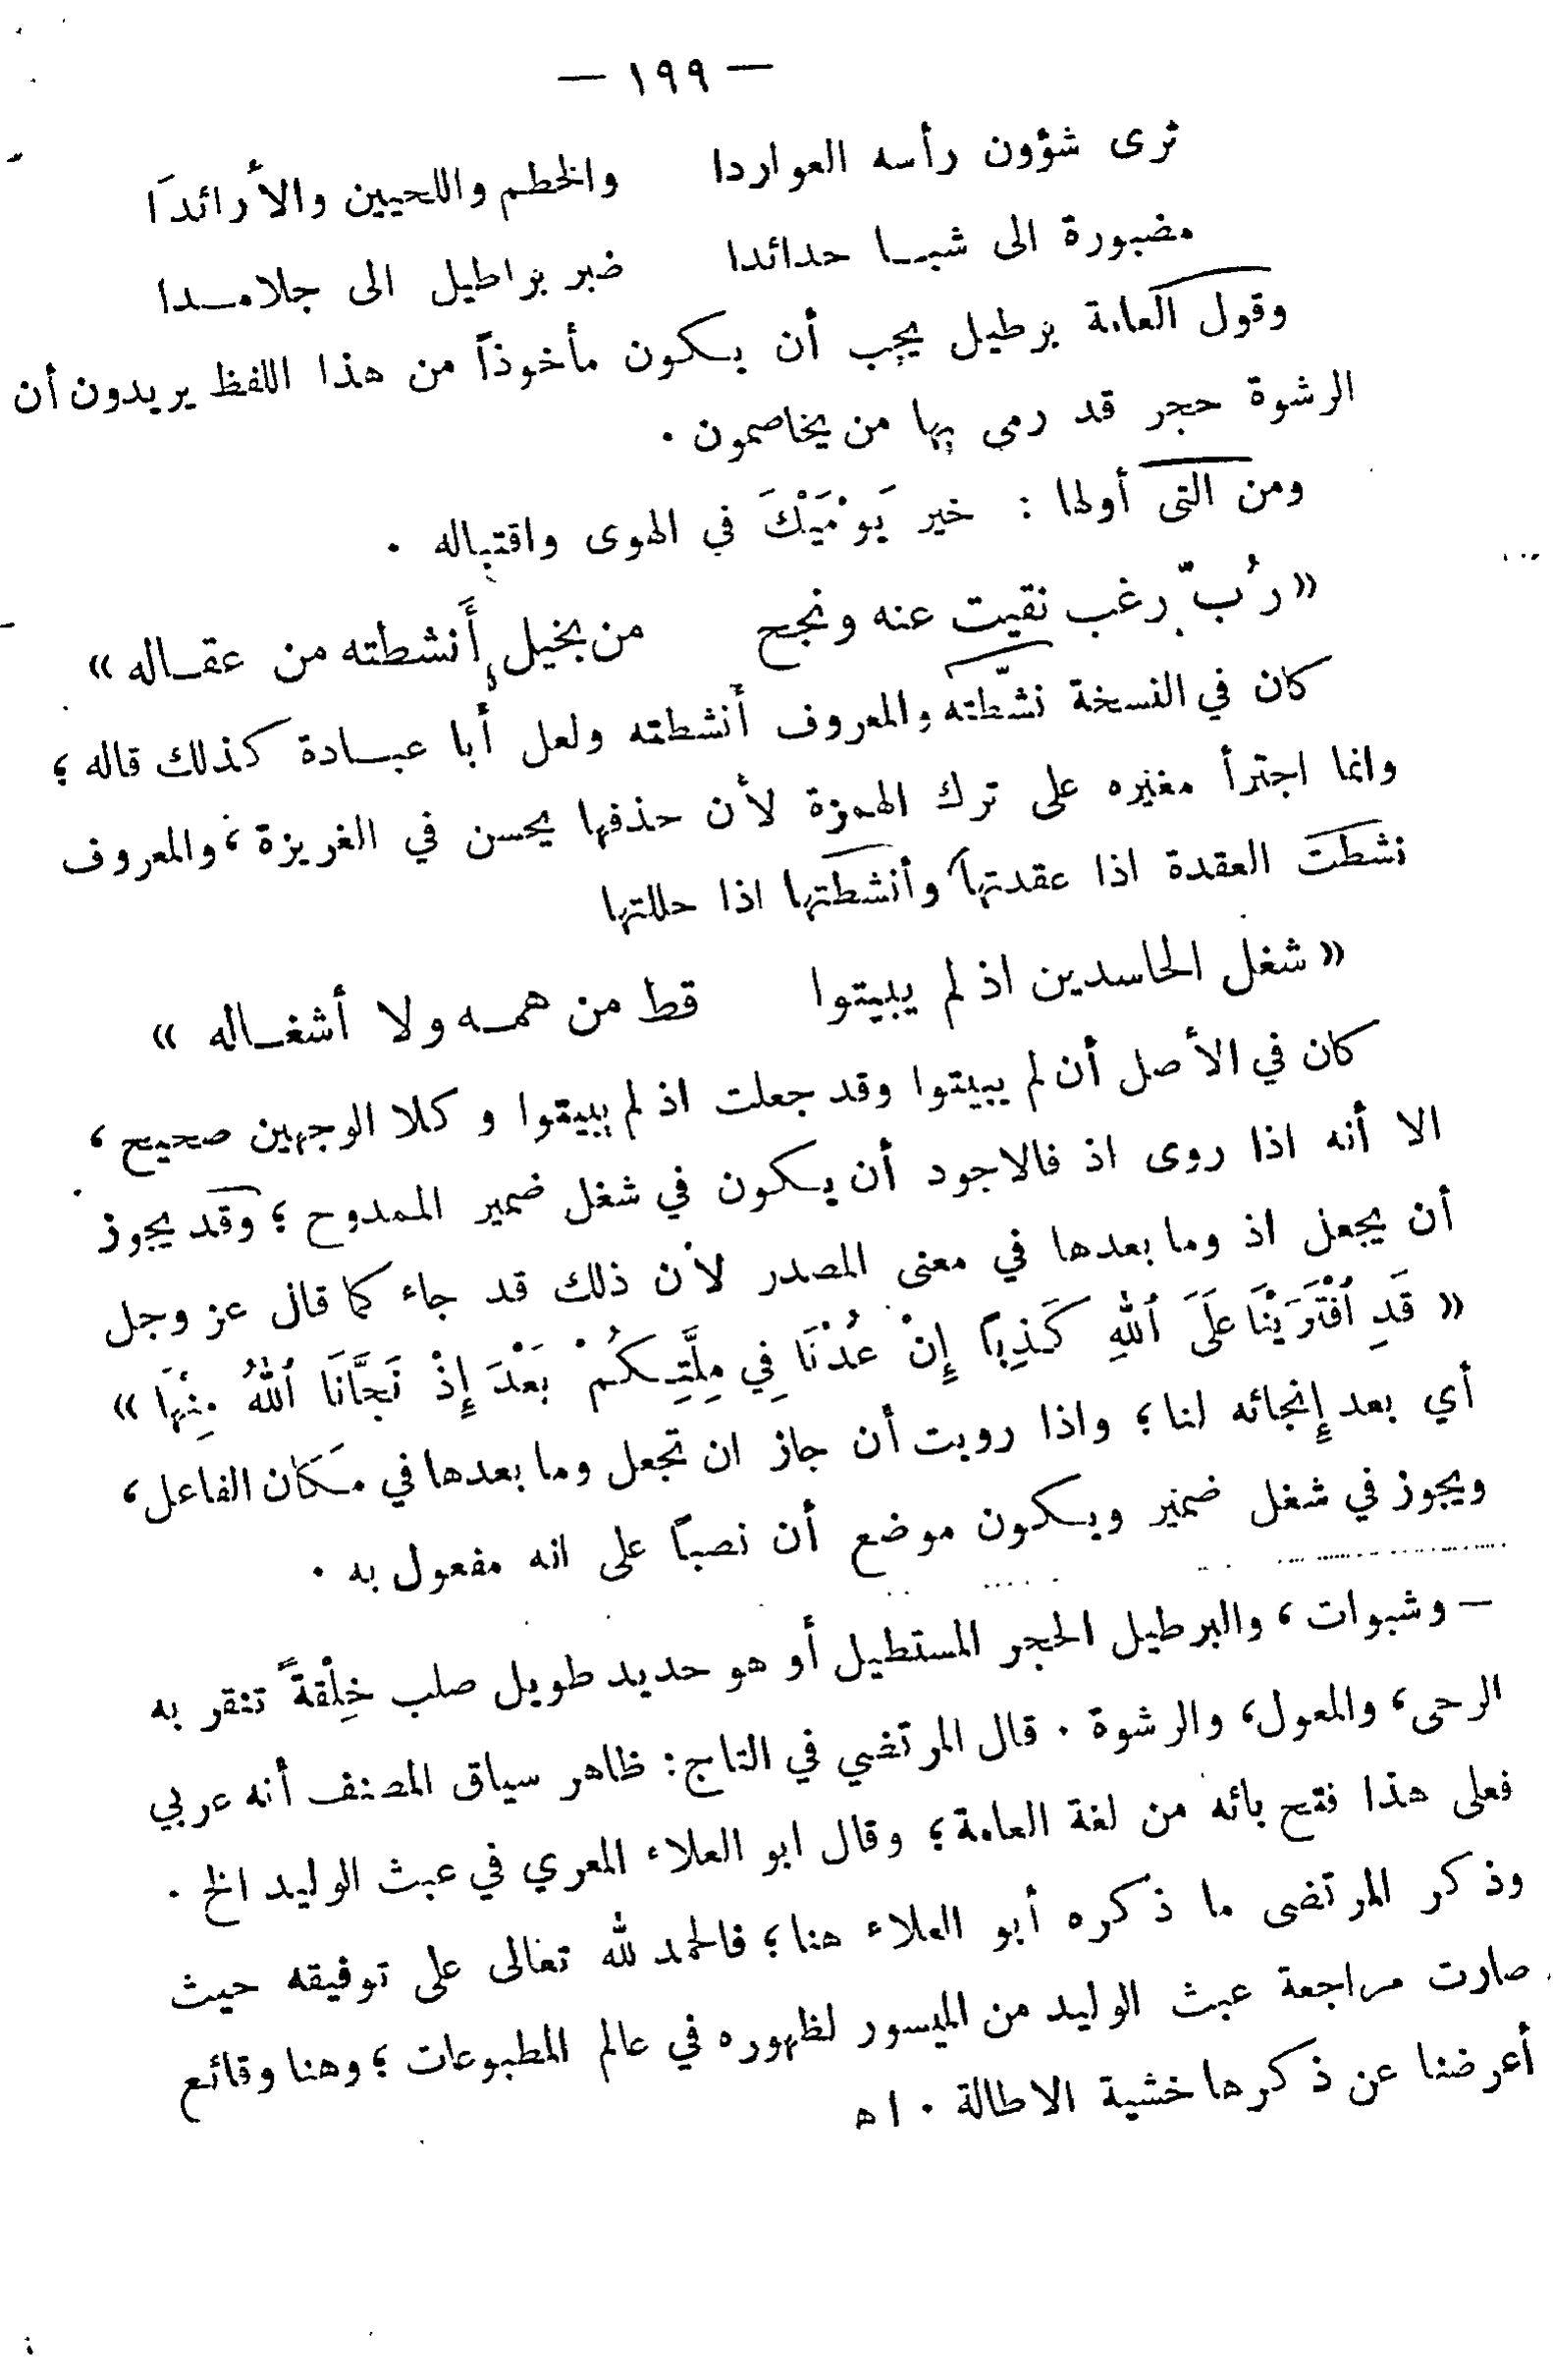 — ١٩٩ —
ترى شؤون رأسه العواردا والخطم واللحيين والأرائدَا
مضبورة الى شبـا حدائدا ضبر براطيل الى جلامـدا
وقول العامة برطيل يجب أن يكون مأخوذاً من هذا اللفظ يريدون أن
الرشوة حجر قد رمى بها من يخاصمون .
ومن التى أولها : خير يَوْمَيْكَ في الهوى واقتباله .
« رُبّ رغب نقيت عنه ونجح من بخيل أَنشطته من عقـاله »
كان في النسخة نشّطته والمعروف أنشطته ولعل أبا عبـادة كذلك قاله ؛
وانما اجترأ مغيره على ترك الهمزة لأن حذفها يحسن في الغريزة ، والمعروف
نشطت العقدة اذا عقدتها وأنشطتها اذا حللتها
« شغل الحاسدين اذ لم يبيتوا قط من همـه ولا أشغـاله »
كان في الأصل أن لم يبيتوا وقد جعلت اذ لم يبيتوا و كلا الوجهين صحيح ،
الا أنه اذا روى اذ فالاجود أن يكون في شغل ضمير الممدوح ؛ وقد يجوز
أن يجعل اذ وما بعدها في معنى المصدر لأن ذلك قد جاء كما قال عز وجل
« قَدِ ٱفْتَرَيْنَا عَلَى ٱللهِ كَذِباً إِنْ عُدْنَا فِي مِلَّتِكُمْ بَعْدَ إِذْ نَجَّانَا ٱللهُ مِنْهَا »
أي بعد إِنجائه لنا ؛ واذا رويت أن جاز ان تجعل وما بعدها في مَكان الفاعل ،
ويجوز في شغل ضمير ويكون موضع أن نصباً على انه مفعول به .
— وشبوات ، والبرطيل الحجر المستطيل أو هو حديد طويل صلب خِلْقةً تنقر به
الرحى ، والمعول ، والرشوة . قال المرتضي في التاج : ظاهر سياق المصنف أنه عربي
فعلى هذا فتح بائه من لغة العامة ؛ وقال ابو العلاء المعري في عبث الوليد الخ .
وذكر المرتضى ما ذكره أبو العلاء هنا ؛ فالحمد لله تعالى على توفيقه حيث
صارت مراجعة عبث الوليد من الميسور لظهوره في عالم المطبوعات ؛ وهنا وقائع
أعرضنا عن ذكرها خشية الاطالة . اه